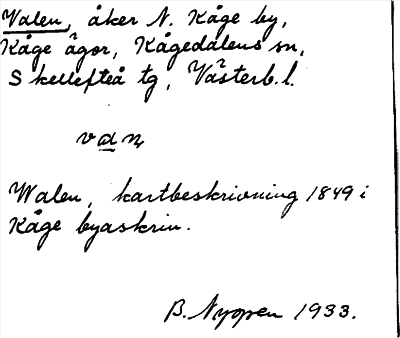 Valen, åker N. Kåge by,
Kåge ägor, Kågedalens sn,
Skellefteå tg, Västerb. l.
Walen, kartbeskrivning 1849 i
Kåge byaskrin.
B. Nygren 1933.